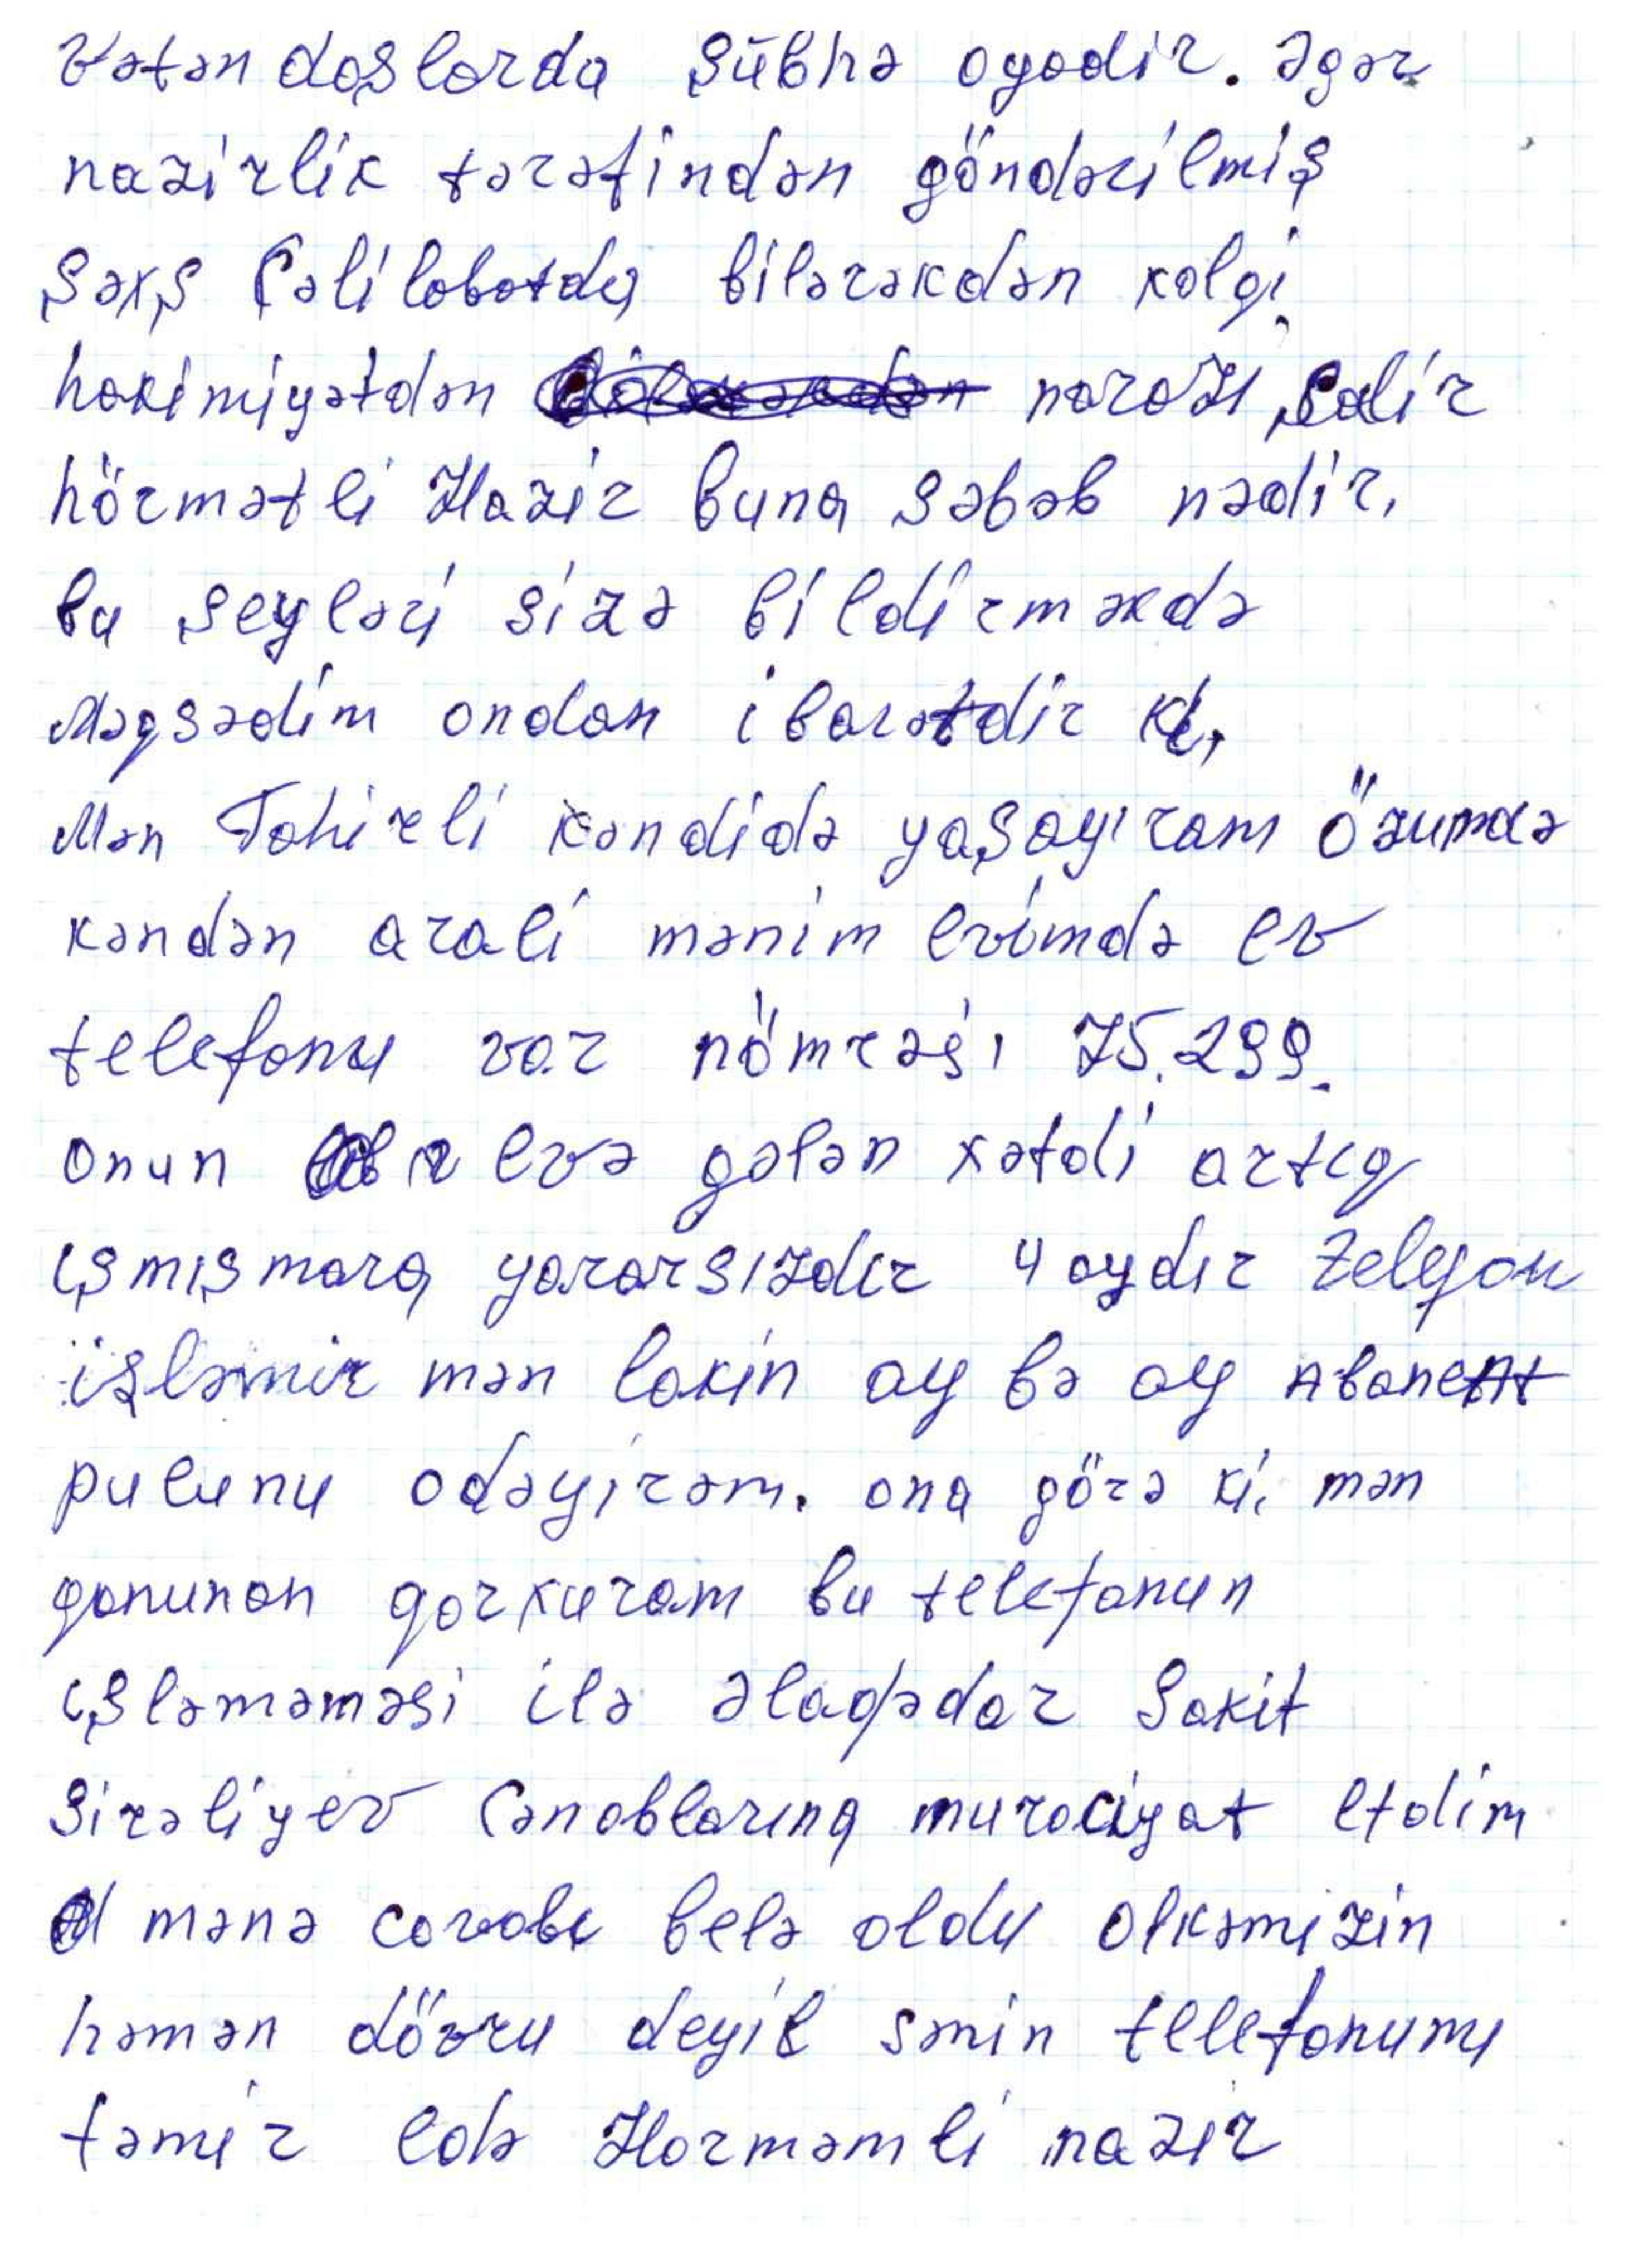 Vətəndaşlarda şübhə oyadir. Əgər
nazirlik tərəfindən göndərilmiş
şəxş Cəlilabatda bilərəkdən xalqi
hakimiyətdən narazı salir
hörmətli Nazir buna səbəb nədir,
bu şeyləri sizə bildirməkdə
Məqsədim ondan ibarətdir ki,
Mən Tahirli kəndidə yaşayıram özumdə
kəndən arali mənim evimdə ev
telefonu var nömrəsi 75.299.
Onun evə gələn xətdi artıq
ışmışmara yararsızdır 4 aydır telefon
işləmir mən lakin ay bə ay Abonent
pulunu odəyirəm. ona görə ki, mən
qanunan qorxuram bu telefonun
ışləməməsi ilə əlaqədar Sakit
Sirəliyev Cənablarına muraciyat etdim
mənə cavabı belə oldu olkəmizin
həmən dövru deyil sənin telefonumu
təmir edə Horməmli nazır